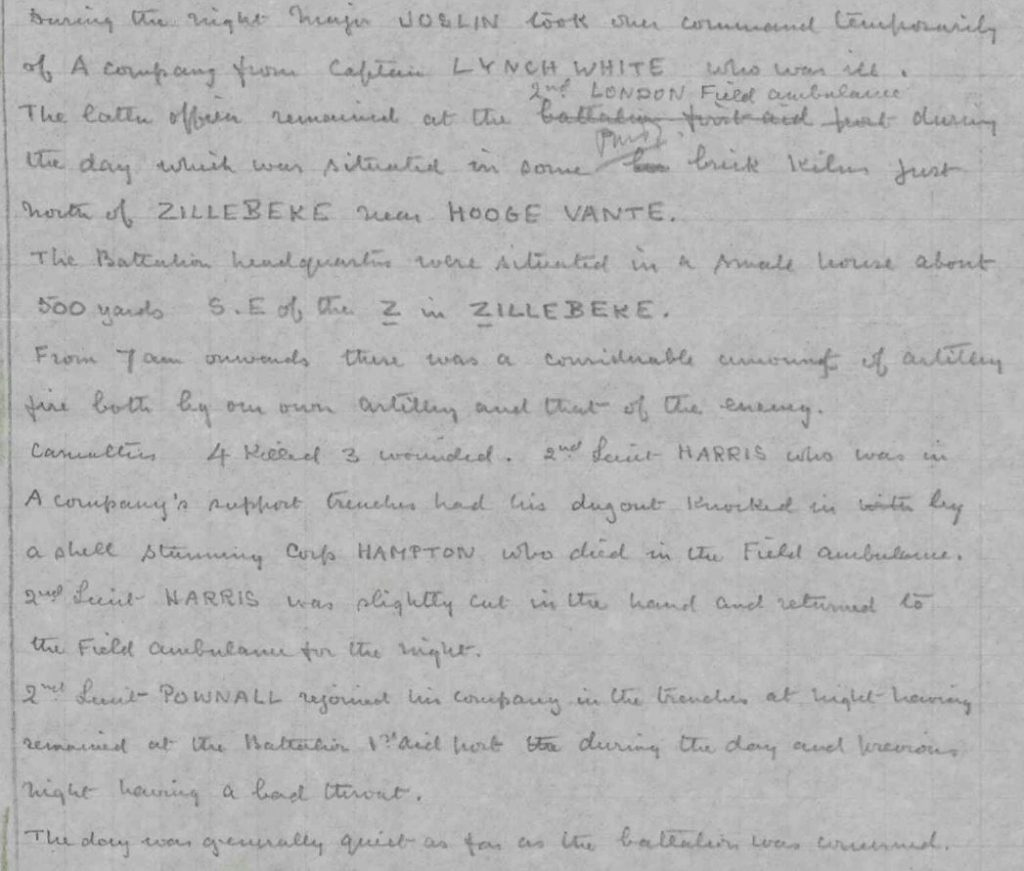 During the night Major JOSLIN took over command temporarily
of A company from Captain LYNCH WHITE who was ill.
2nd LONDON Field ambulance
The latter officer remained at the battalion first aid post during
the day which was situated in some brick kilns just
north of ZILLEBEKE near HOOGE VANTE.
The Battalion headquarters were situated in a small house about
500 yards S.E of the Z in ZILLEBEKE.
From 7 am onwards there was a considerable amount of artillery
fire both by our own artillery and that of the enemy.
Casualties 4 Killed 3 wounded. 2nd Lieut HARRIS who was in
A company's support trenches had his dugout knocked in with by
a shell stunning Corp HAMPTON who died in the Field ambulance.
2nd Lieut HARRIS was slightly cut in the hand and returned to
the Field ambulance for the night.
2nd Lieut POWNALL rejoined his company in the trenches at night having
remained at the Battalion 1st aid post the during the day and previous
night having a bad throat.
The day was generally quiet as far as the battalion was concerned.